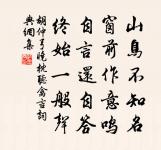 山鳥不知名
窗前作意鳴
自言還自答
終始一般聲
胡仲弓晚枕聽禽言詞
典網集